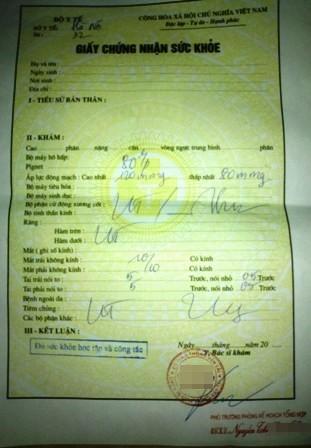 BỘ Y TẾ
CỘNG HÒA XÃ HỘI CHỦ NGHĨA VIỆT NAM
Độc lập - Tự do - Hạnh phúc
SỞ Y TẾ Hà Nội
Số : 32
GIẤY CHỨNG NHẬN SỨC KHỎE
Họ và tên :
Ngày sinh :
Nơi sinh :
Địa chỉ :
I - TIỂU SỬ BẢN THÂN :
II - KHÁM :
Cao phân nặng cân vòng ngực trung bình phân
Bộ máy hô hấp:
Pignet
Áp lực động mạch : Cao nhất 120 mmg thấp nhất 80 mmg
Bộ máy tiêu hóa :
Bộ máy sinh dục :
Bộ phận cử động xương cốt :
Bộ thần kinh :
Răng :
Hàm trên :
Hàm dưới :
Mắt ( ghi số kính) :
Mắt trái không kính : 10/10 Có kính
Mắt phải không kính : Có kính
Tai trái nói to : 5 Trước, nói nhỏ 05 Trước
Tai phải nói to : 5 Trước, nói nhỏ 05 Trước
Bệnh ngoài da :
Tiêm chủng :
Các bộ phận khác :
III - KẾT LUẬN :
Ngày tháng năm 20
Y, Bác sĩ khám
Đủ sức khỏe học tập và công tác
PHÓ TRƯỞNG PHÒNG KẾ HOẠCH TỔNG HỢP
Nguyễn